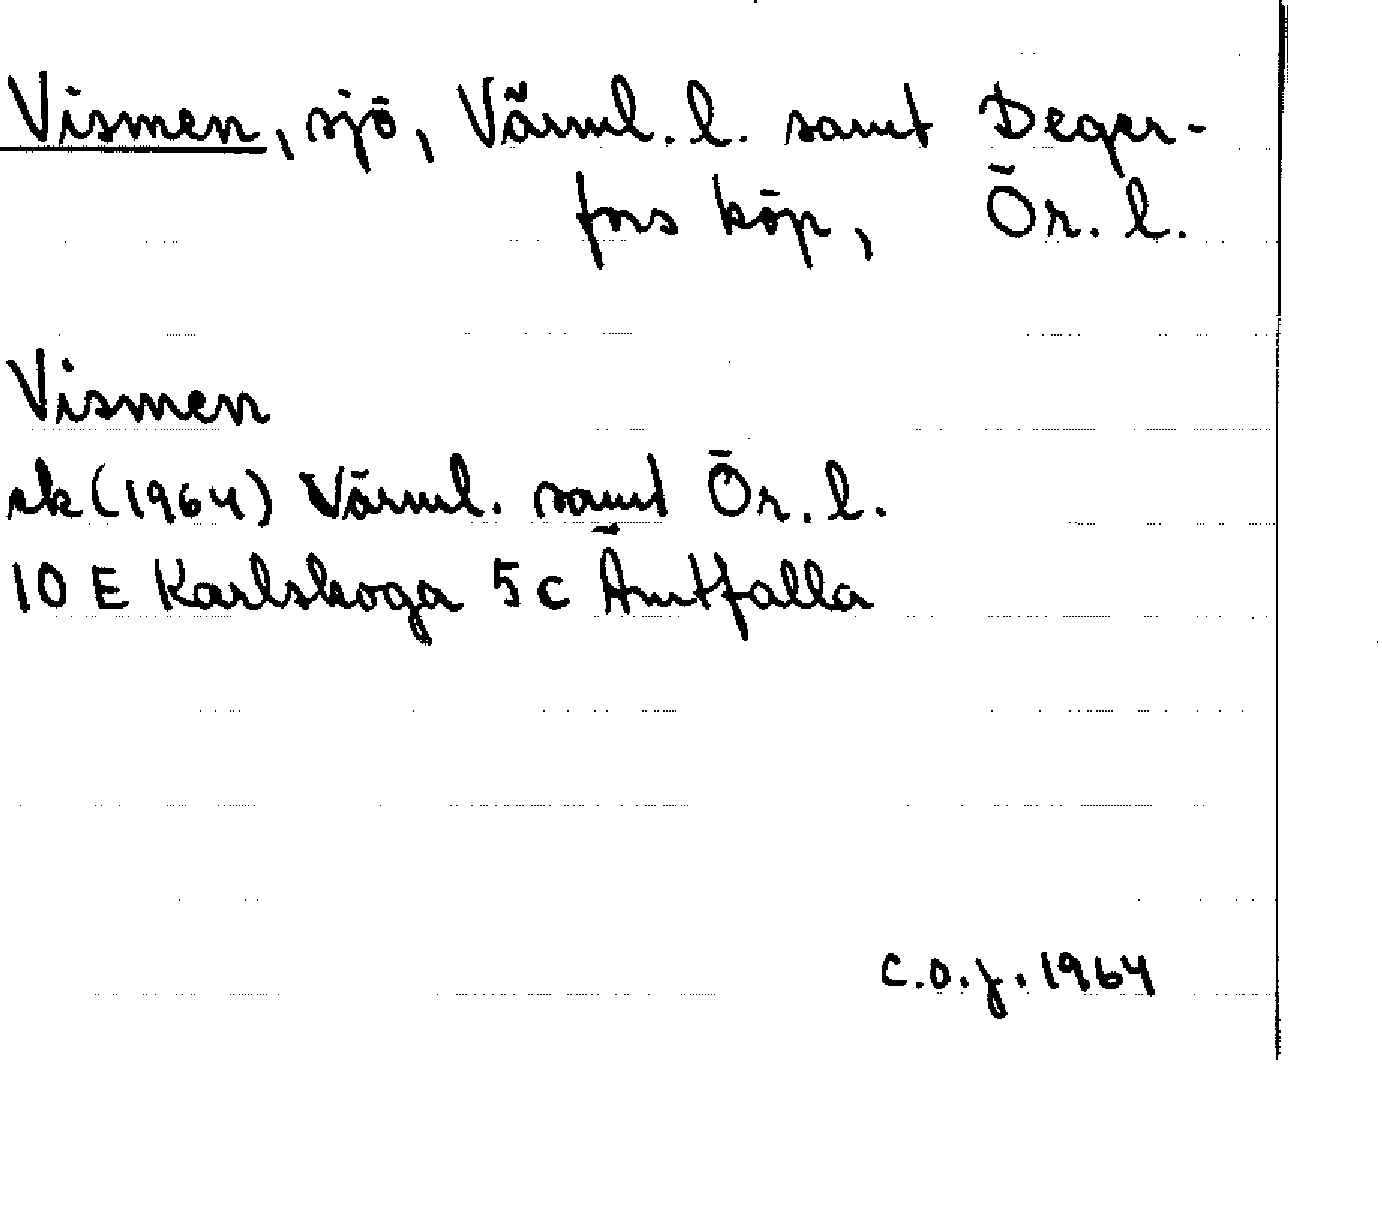 Vismen, sjö, Värml. l. samt Deger-
fors köp, Ör. l.
Vismen
ek (1964) Värml. samt Ör. l.
10 E Karlskoga 5c Ämtfalla
C.O.J. 1964